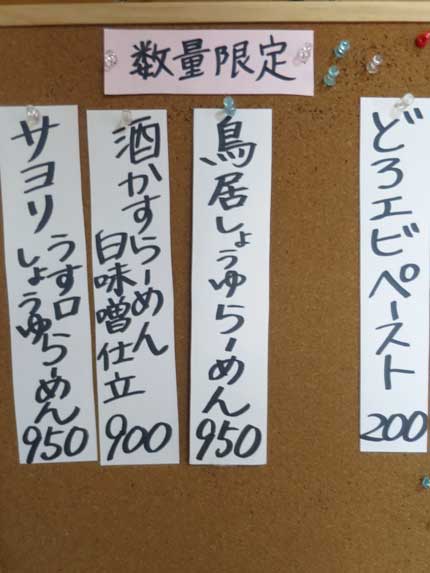 数量限定
どろエビペースト
200
鳥居しょうゆらーめん
950
酒かすらーめん
白味噌仕立
900
サヨリ
うす口
しょうゆらーめん
950